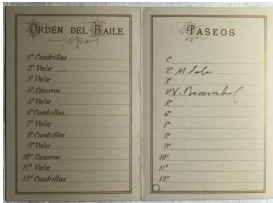 ORDEN DEL BAILE
1ª Cuadrillas
2º Valse
3º Valse
4º Lanceros
5º Valse
6ª Cuadrillas
7º Valse
8ª Cuadrillas
9º Valse
10º Lanceros
11º Valse
12ª Cuadrillas
PASEOS
1º
2º M.
3º
4º X.
5º
6º
7º
8º
9º
10º
11º
12º